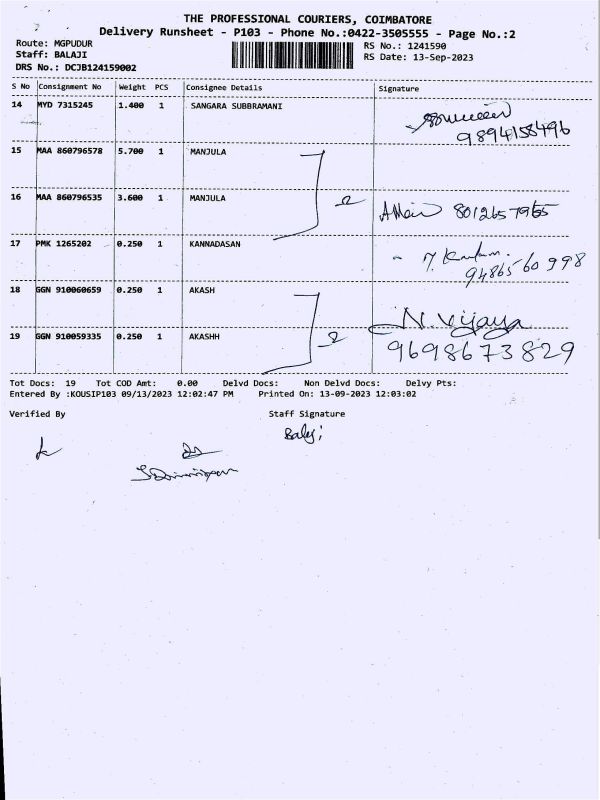 THE PROFESSIONAL COURIERS, COIMBATORE
Delivery Runsheet - P103 - Phone No.:0422-3505555 - Page No.:2
Route: MGPUDUR
Staff: BALAJI
DRS No.: DCJB124159002
RS No.: 1241590
RS Date: 13-Sep-2023
S No Consignment No Weight PCS Consignee Details Signature
14 MYD 7315245 1.400 1 SANGARA SUBBRAMANI
9894158496
15 MAA 860796578 5.700 1 MANJULA
16 MAA 860796535 3.600 1 MANJULA 2 8012657955
17 PMK 1265202 0.250 1 KANNADASAN
9486560998
18 GGN 910060659 0.250 1 AKASH N. Vijaya
19 GGN 910059335 0.250 1 AKASHH 2 9698673829
Tot Docs: 19 Tot COD Amt: 0.00 Delvd Docs: Non Delvd Docs: Delvy Pts:
Entered By :KOUSIP103 09/13/2023 12:02:47 PM Printed On: 13-09-2023 12:03:02
Verified By Staff Signature
Balaji